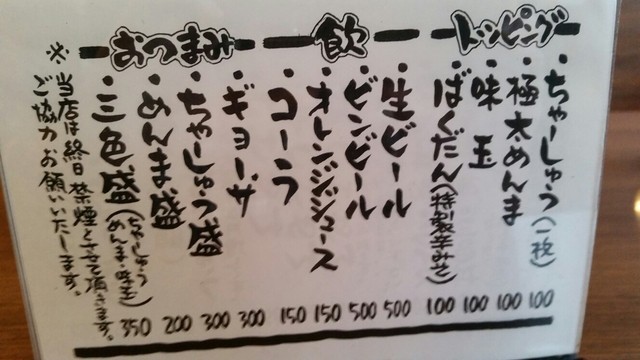 トッピング
・ちゃーしゅう(一枚) 100
・極太めんま 100
・味玉 100
・ばくだん(特製辛みそ) 100
飲
・生ビール 500
・ビンビール 500
・オレンジジュース 150
・コーラ 150
おつまみ
・ギョーザ 300
・ちゃーしゅう盛 300
・めんま盛 200
・三色盛(ちゃーしゅう めんま・味玉) 350
※当店は終日禁煙とさせて頂きます。
ご協力お願いいたします。